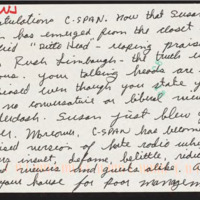 tulations C-SPAN. Now that Susan
has emerged from the closet
"Ditto Head" - raping praise
Rush Limbaugh - the truth is
ous. your talking heads are
biased even though you state
no conservative or liberal view
Susan just blew y
er. Moreover, C-SPAN has becom
ised version of hate radio wher
insult, defame, belittle, ridic
viewers and guests alike. A
your house for poor managem